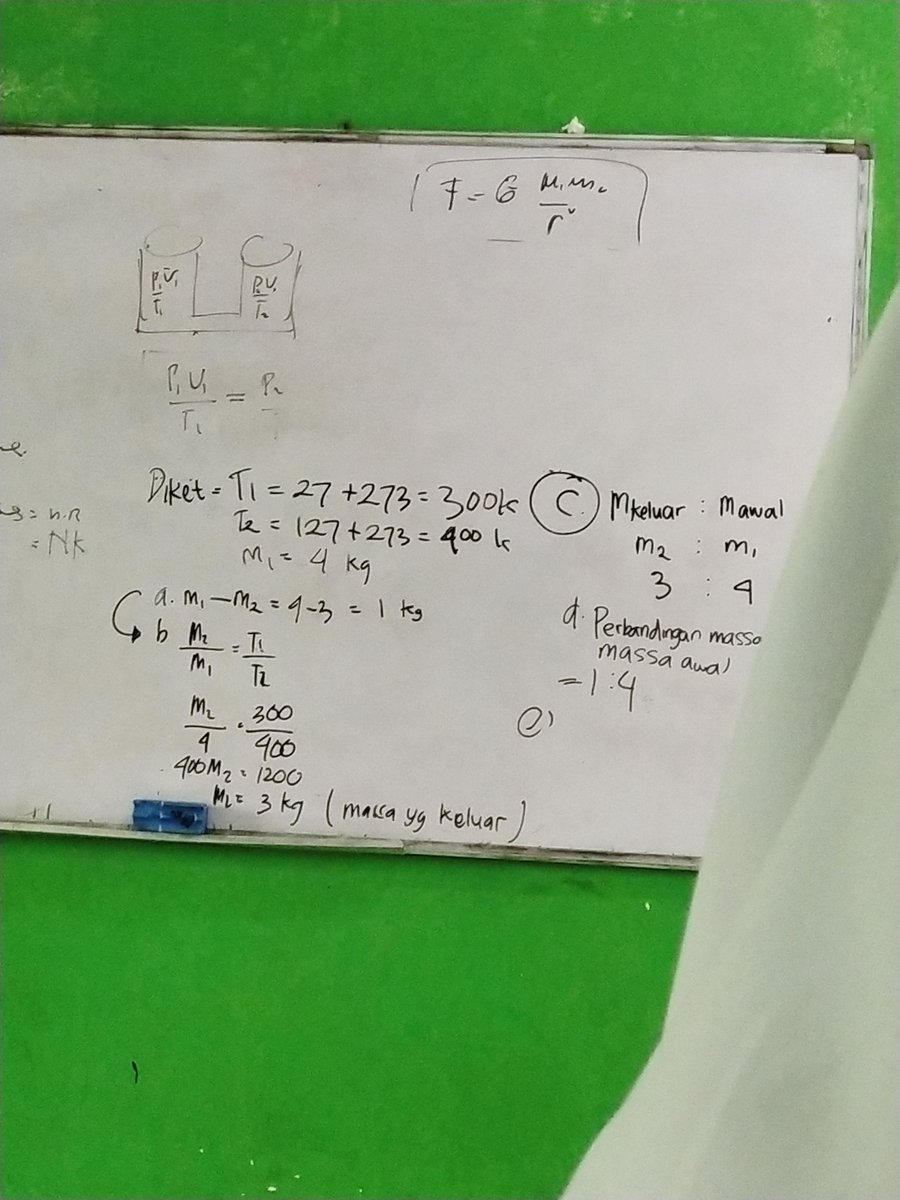 F = G m₁m₂ / r²
P₁V₁ / T₁
P₂V₂ / T₂
P₁V₁ / T₁ = P₂
= n.R
= Nk
Diket = T₁ = 27 + 273 = 300k
T₂ = 127 + 273 = 400 k
M₁ = 4 kg
a. m₁ — m₂ = 4-3 = 1 kg
b M₂ / M₁ = T₁ / T₂
M₂ / 4 = 300 / 400
400M₂ = 1200
M₂ = 3 kg (massa yg keluar)
C. Mkeluar : Mawal
m₂ : m₁
3 : 4
d. Perbandingan massa
massa awal
= 1 : 4
e)